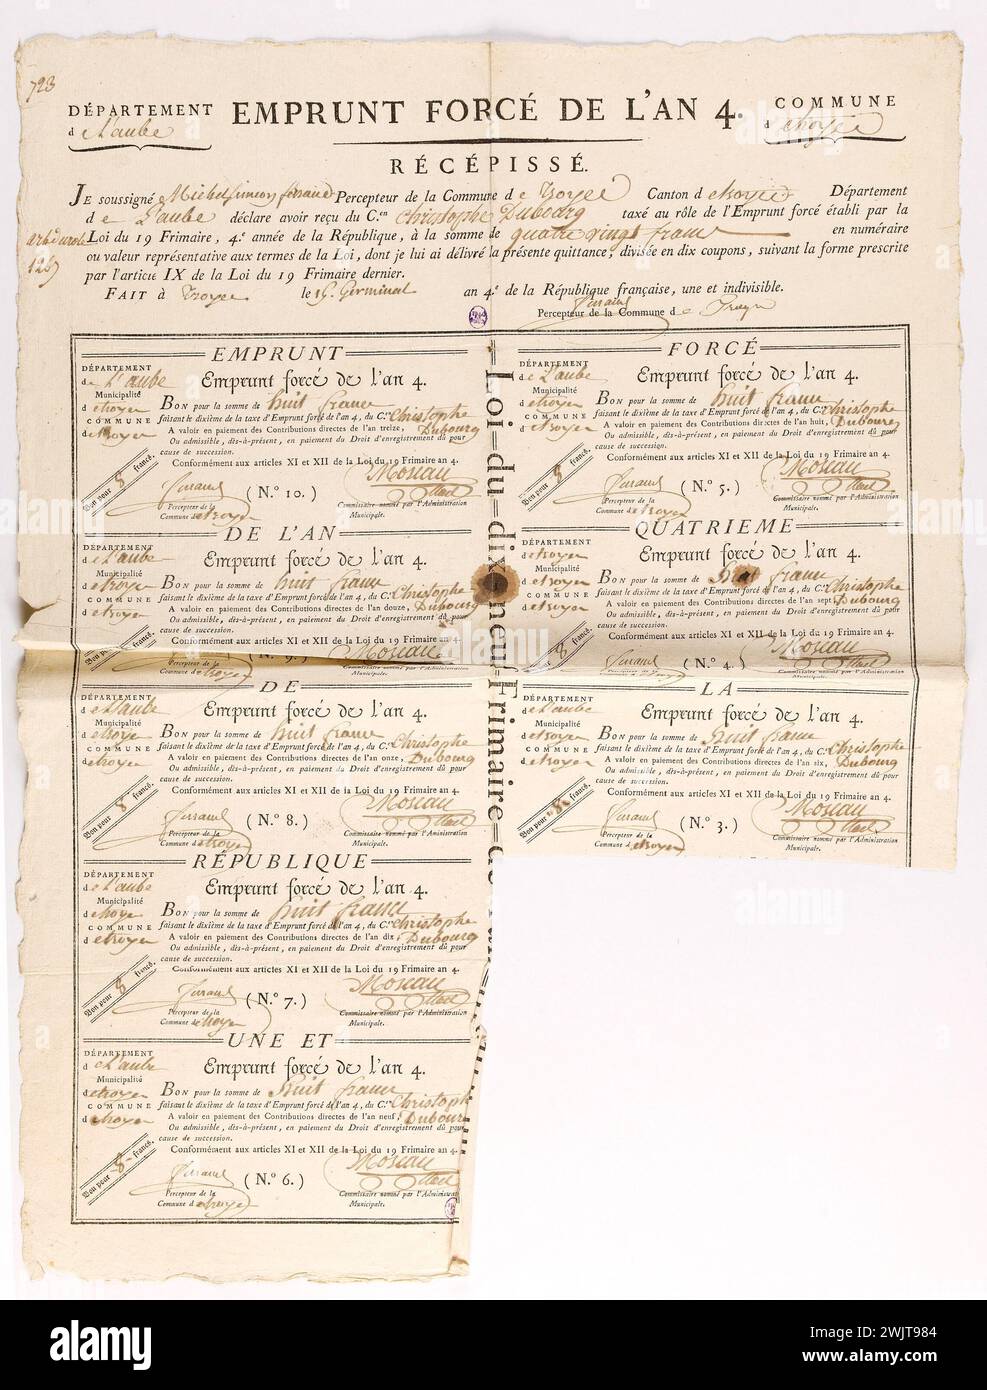 723
DÉPARTEMENT
d e L'aube
EMPRUNT FORCÉ DE L'AN 4.
COMMUNE
d e troyes
RÉCÉPISSÉ.
JE soussigné Michel Simon Percepteur de la Commune de Troyes Canton de troyes Département
de L'aube déclare avoir reçu du C.en Christophe Dubourg taxé au rôle de l'Emprunt forcé établi par la
Loi du 19 Frimaire, 4.e année de la République, à la somme de quatre vingt francs en numéraire
ou valeur représentative aux termes de la Loi, dont je lui ai délivré la présente quittance, divisée en dix coupons, suivant la forme prescrite
par l'article IX de la Loi du 19 Frimaire dernier.
FAIT à Troyes le Germinal an 4.e de la République française, une et indivisible.
Percepteur de la Commune de Troyes
art. du role
EMPRUNT
DÉPARTEMENT
de L'aube
Municipalité
d etroyes
COMMUNE
d etroyes
Emprunt forcé de l'an 4.
BON pour la somme de huit francs
faisant le dixième de la taxe d'Emprunt forcé de l'an 4, du C.en Christophe
A valoir en paiement des Contributions directes de l'an treize, Dubourg
Ou admissible, dis-à-présent, en paiement du Droit d'enregistrement dû pour
cause de succession.
Conformément aux articles XI et XII de la Loi du 19 Frimaire an 4.
Bon pour 8 francs.
(N.° 10.)
Percepteur de la
Commune de troyes
Commissaire nommé par l'Administration
Municipale.
DE L'AN
DÉPARTEMENT
d e L'aube
Municipalité
d etroyes
COMMUNE
d etroyes
Emprunt forcé de l'an 4.
BON pour la somme de huit francs
faisant le dixième de la taxe d'Emprunt forcé de l'an 4, du C.en Christophe
A valoir en paiement des Contributions directes de l'an douze, Dubourg
Ou admissible, dis-à-présent, en paiement du Droit d'enregistrement dû pour
cause de succession.
Conformément aux articles XI et XII de la Loi du 19 Frimaire an 4.
Bon pour
(N.° 9.)
Percepteur de la
Commune de troyes
Commissaire nommé par l'Administration
Municipale.
DE
DÉPARTEMENT
d e L'aube
Municipalité
d etroyes
COMMUNE
d etroyes
Emprunt forcé de l'an 4.
BON pour la somme de huit francs
faisant le dixième de la taxe d'Emprunt forcé de l'an 4, du C.en Christophe
A valoir en paiement des Contributions directes de l'an onze, Dubourg
Ou admissible, dis-à-présent, en paiement du Droit d'enregistrement dû pour
cause de succession.
Conformément aux articles XI et XII de la Loi du 19 Frimaire an 4.
Bon pour 8 francs.
(N.° 8.)
Percepteur de la
Commune de troyes
Commissaire nommé par l'Administration
Municipale.
RÉPUBLIQUE
DÉPARTEMENT
d e L'aube
Municipalité
d etroyes
COMMUNE
d etroyes
Emprunt forcé de l'an 4.
BON pour la somme de huit francs
faisant le dixième de la taxe d'Emprunt forcé de l'an 4, du C.en Christophe
A valoir en paiement des Contributions directes de l'an dix, Dubourg
Ou admissible, dis-à-présent, en paiement du Droit d'enregistrement dû pour
cause de succession.
Conformément aux articles XI et XII de la Loi du 19 Frimaire an 4.
Bon pour 8 francs.
(N.° 7.)
Percepteur de la
Commune de troyes
Commissaire nommé par l'Administration
Municipale.
UNE ET
DÉPARTEMENT
d e L'aube
Municipalité
d etroyes
COMMUNE
d etroyes
Emprunt forcé de l'an 4.
BON pour la somme de Huit francs
faisant le dixième de la taxe d'Emprunt forcé de l'an 4, du C.en Christophe
A valoir en paiement des Contributions directes de l'an neuf, Dubourg
Ou admissible, dis-à-présent, en paiement du Droit d'enregistrement dû pour
cause de succession.
Conformément aux articles XI et XII de la Loi du 19 Frimaire an 4.
Bon pour 8 francs.
(N.° 6.)
Percepteur de la
Commune de troyes
Commissaire nommé par l'Administration
Municipale.
Loi du dix-neuf Frimaire de
FORCÉ
DÉPARTEMENT
de L'aube
Municipalité
d etroyes
COMMUNE
d etroyes
Emprunt forcé de l'an 4.
BON pour la somme de huit francs
faisant le dixième de la taxe d'Emprunt forcé de l'an 4, du C.en Christophe
A valoir en paiement des Contributions directes de l'an huit, Dubourg
Ou admissible, dis-à-présent, en paiement du Droit d'enregistrement dû pour
cause de succession.
Conformément aux articles XI et XII de la Loi du 19 Frimaire an 4.
Bon pour 8 francs.
(N.° 5.)
Percepteur de la
Commune de troyes
Commissaire nommé par l'Administration
Municipale.
QUATRIEME
DÉPARTEMENT
Municipalité
d e L'aube
COMMUNE
d etroyes
Emprunt forcé de l'an 4.
BON pour la somme de huit francs
faisant le dixième de la taxe d'Emprunt forcé de l'an 4, du C.en Christophe
A valoir en paiement des Contributions directes de l'an sept, Dubourg
Ou admissible, dis-à-présent, en paiement du Droit d'enregistrement dû pour
cause de succession.
Conformément aux articles XI et XII de la Loi du 19 Frimaire an 4.
Bon pour 8 francs.
(N.° 4.)
Percepteur de la
Commune de troyes
Commissaire nommé par l'Administration
Municipale.
LA
DÉPARTEMENT
d e L'aube
Municipalité
d etroyes
COMMUNE
d etroyes
Emprunt forcé de l'an 4.
BON pour la somme de huit francs
faisant le dixième de la taxe d'Emprunt forcé de l'an 4, du C.en Christophe
A valoir en paiement des Contributions directes de l'an six, Dubourg
Ou admissible, dis-à-présent, en paiement du Droit d'enregistrement dû pour
cause de succession.
Conformément aux articles XI et XII de la Loi du 19 Frimaire an 4.
Bon pour 8 francs.
(N.° 3.)
Percepteur de la
Commune de troyes
Commissaire nommé par l'Administration
Municipale.
alamy
Image ID: 2WJT984
www.alamy.com